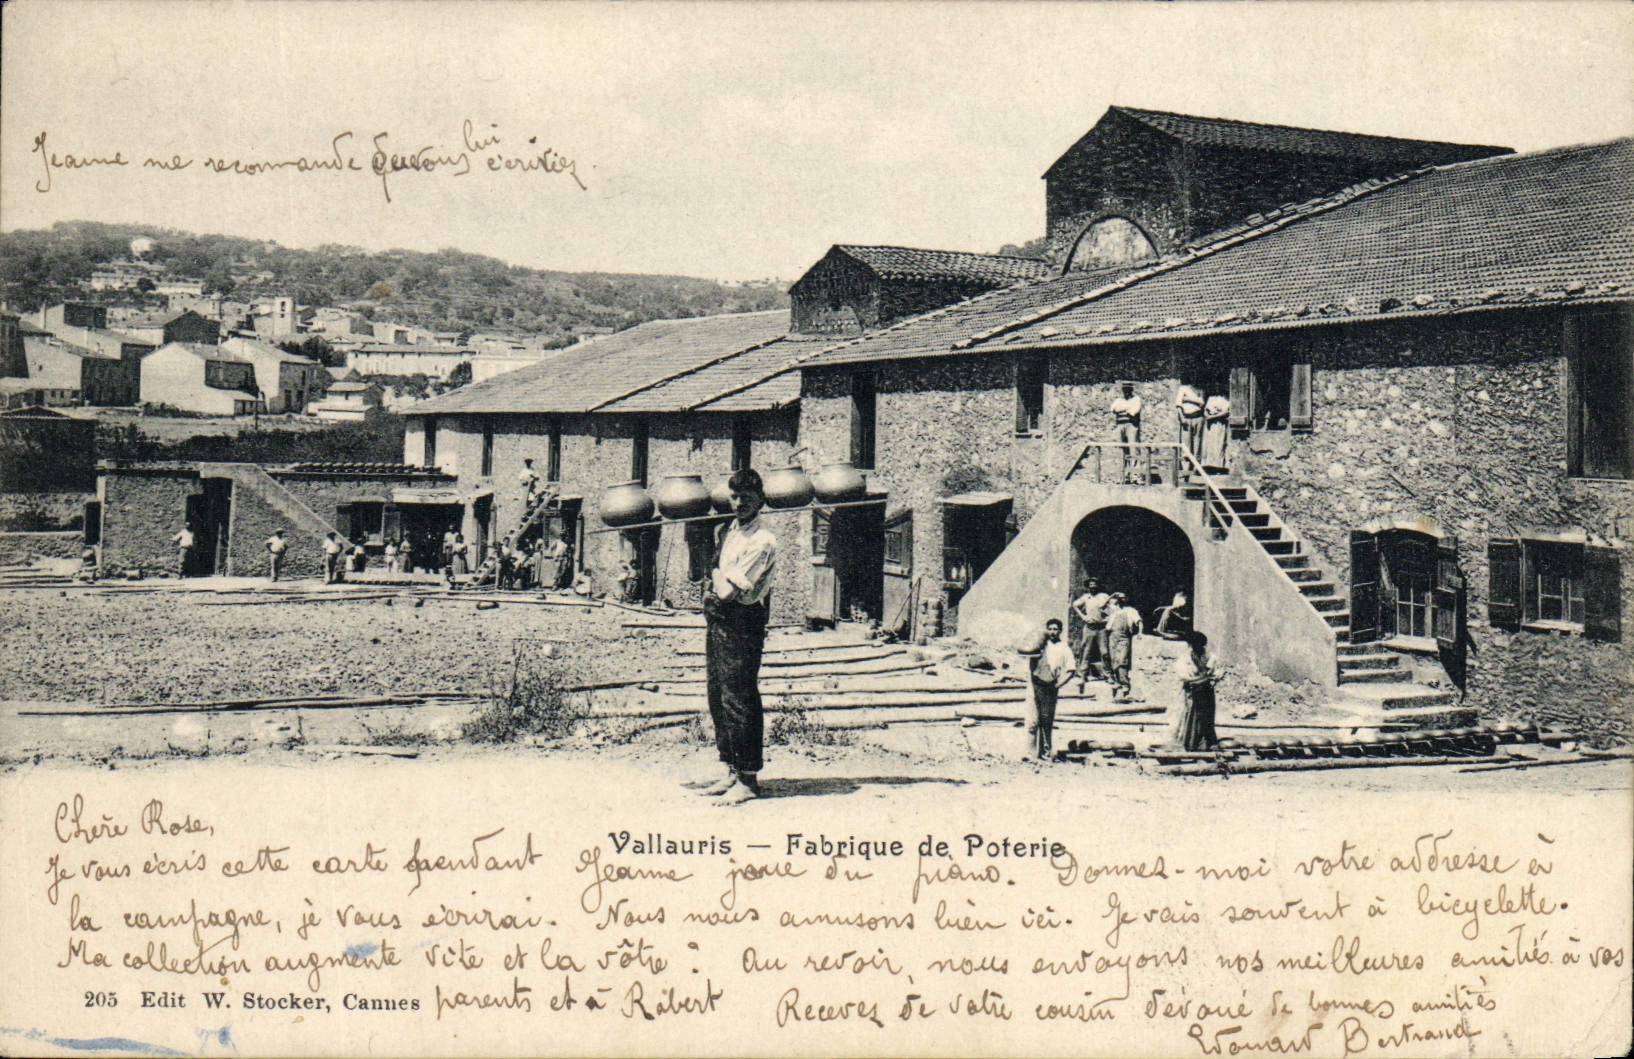 Jeanne me recommande que vous lui écriviez.
Chère Rose,
Vallauris — Fabrique de Poterie
Je vous écris cette carte pendant Jeanne joue du piano. Donnez-moi votre addresse à
la campagne, je vous écrirai. Nous nous amusons bien ici. Je vais souvent à bicyclette.
Ma collection augmente vite et la vôtre? Au revoir, nous envoyons nos meilleures amitiés à vos
205 Edit W. Stocker, Cannes
parents et à Robert Recevez de votre cousin dévoué de bonnes amitiés
Edouard Bertrand